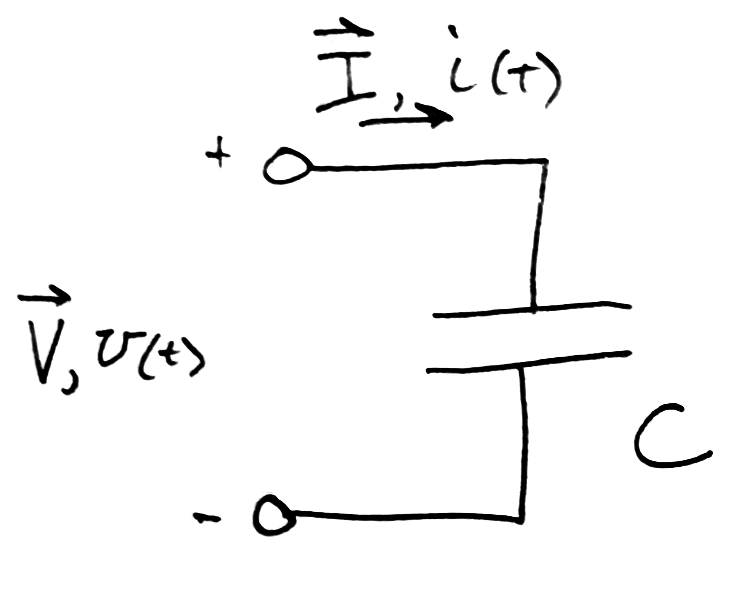 I⃗, i(t)
+
V⃗, v(t)
C
-